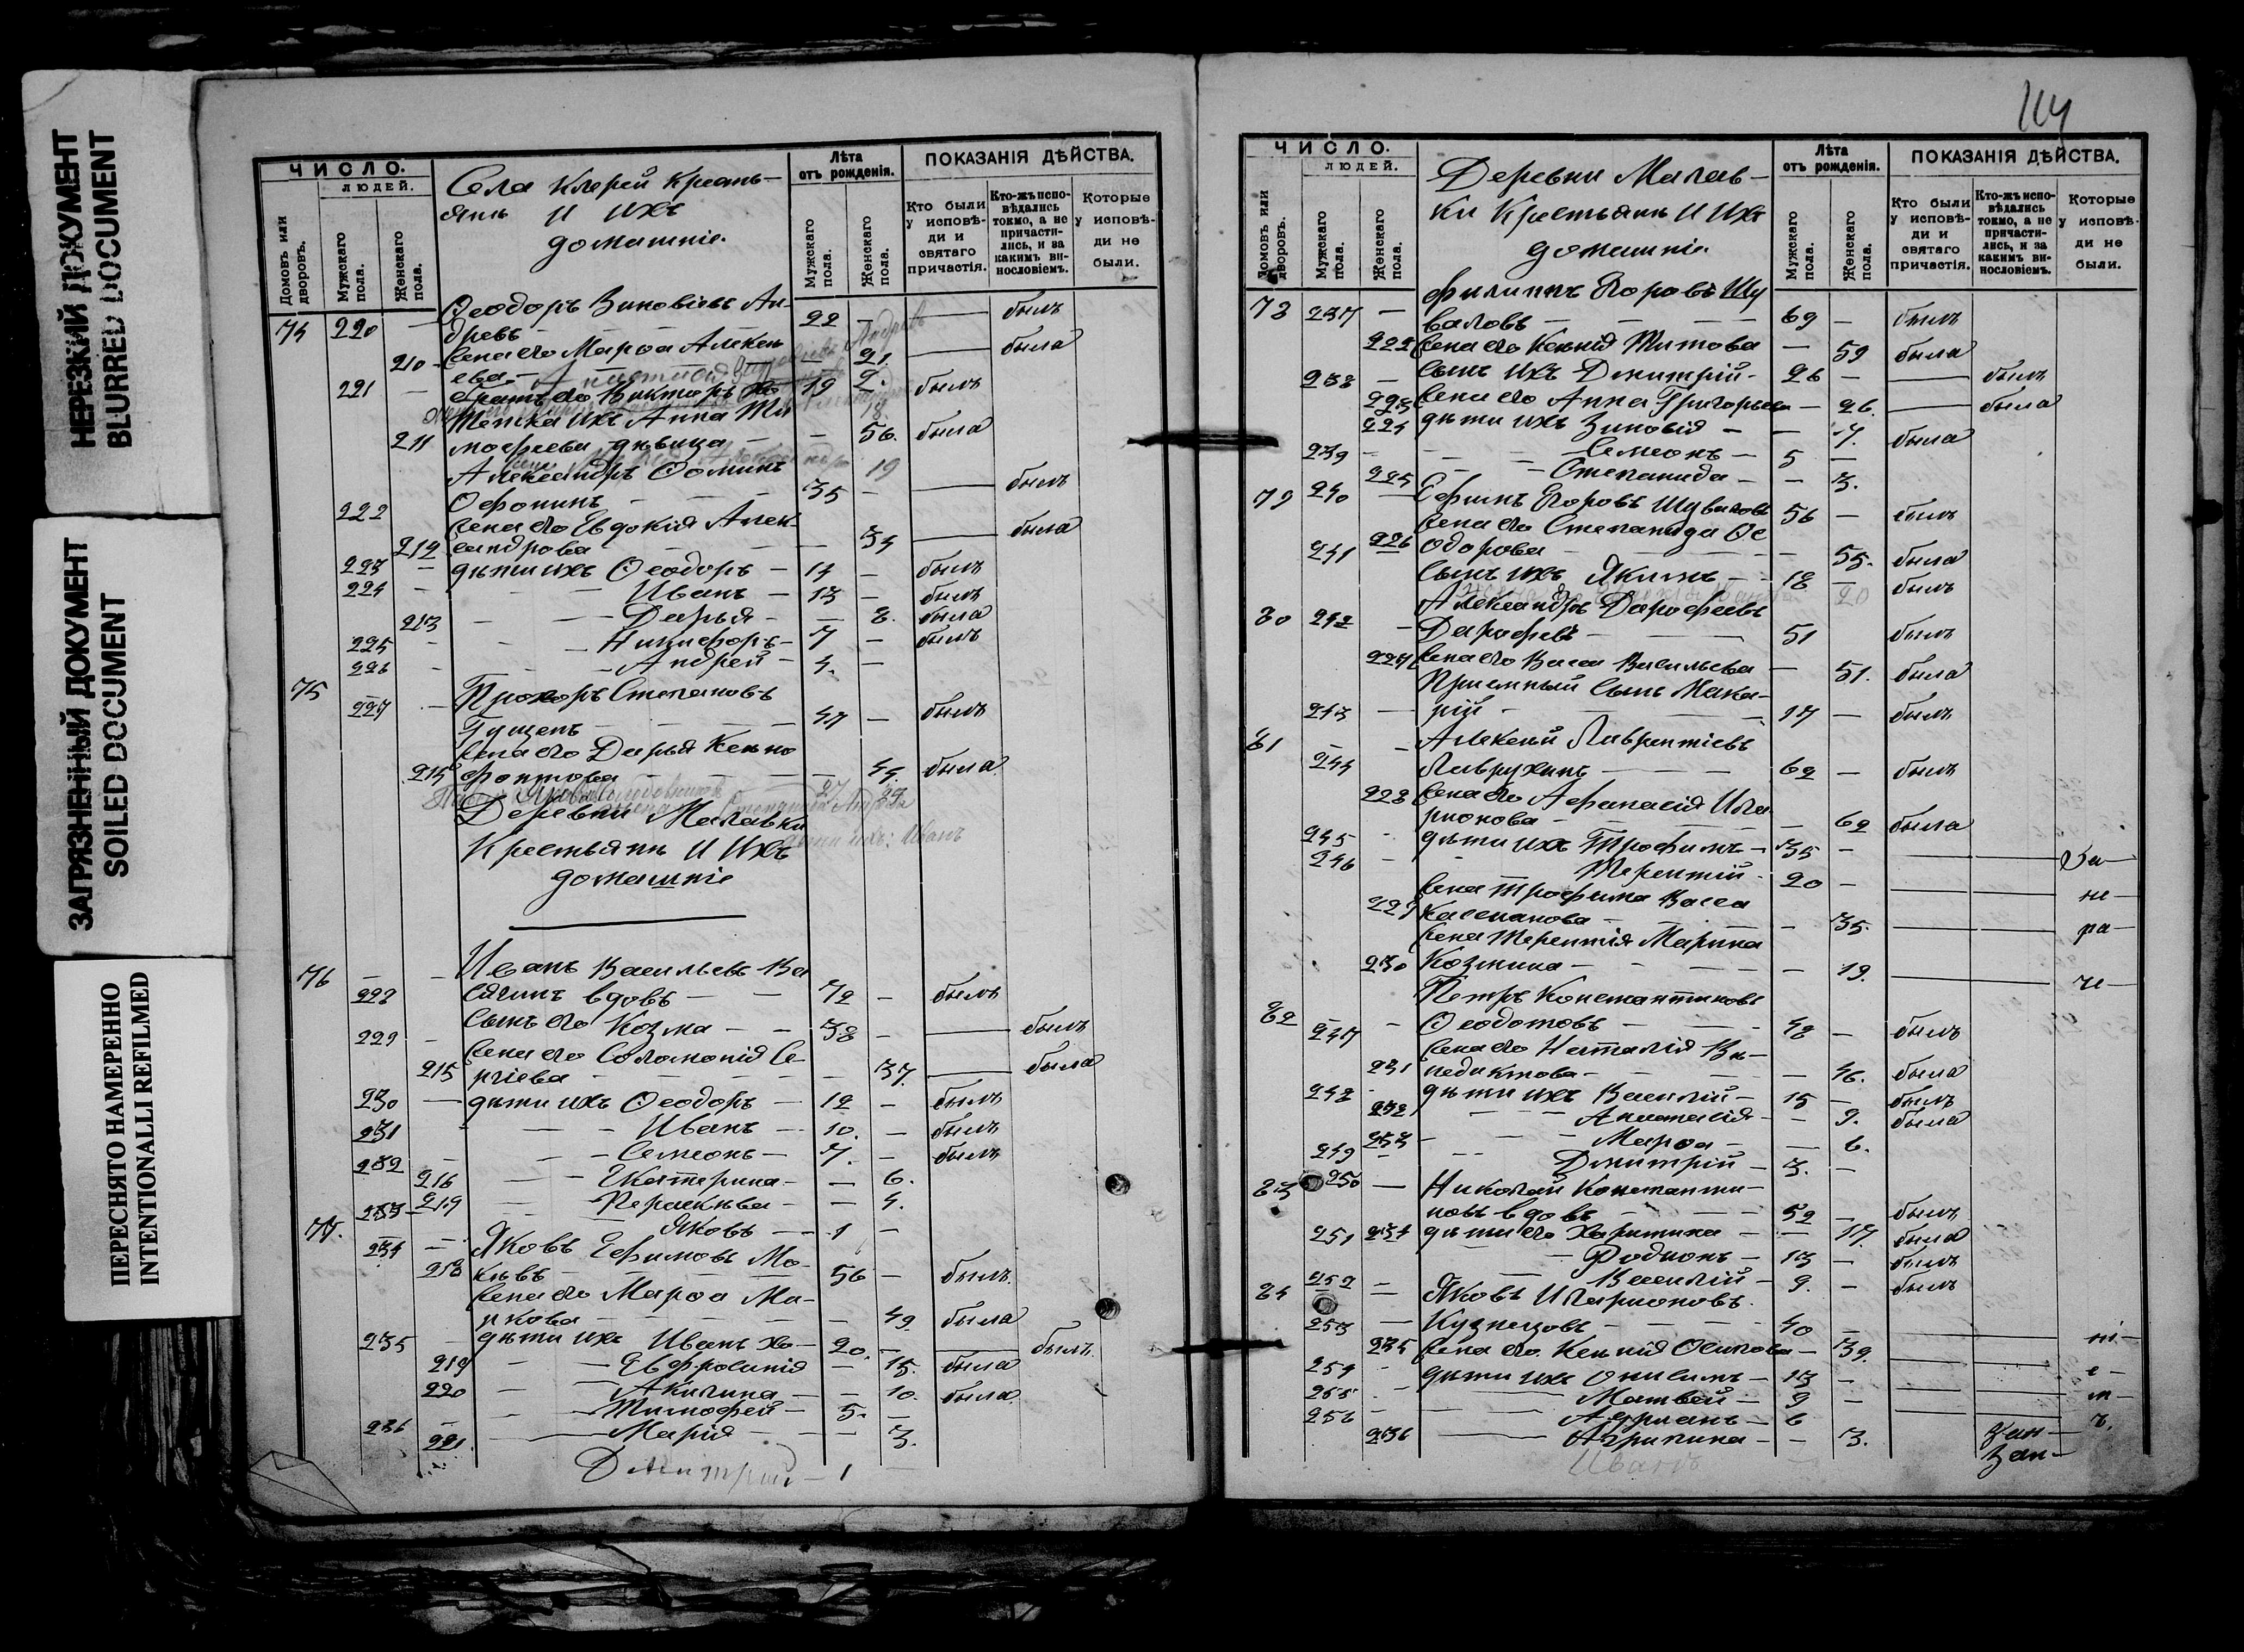 НЕРЕЗКИЙ ДОКУМЕНТ
BLURRED DOCUMENT
ЗАГРЯЗНЕННЫЙ ДОКУМЕНТ
SOILED DOCUMENT
ПЕРЕСНЯТО НАМЕРЕННО
INTENTIONALLI REFILMED
ЧИСЛО.
ЛЮДЕЙ.
Домовъ или дворовъ.
Мужскаго пола.
Женскаго пола.
Села Клерей Крестьянъ и ихъ
домашніе.
Лѣта отъ рожденія.
Мужскаго пола.
Женскаго пола.
ПОКАЗАНІЯ ДѢЙСТВА.
Кто были у исповѣди и святаго причастія.
Кто-жъ исповѣдались токмо, а не причастились, и за какимъ винословіемъ.
Которые у исповѣди не были.
74 220 — Ѳеодоръ Зиновіевъ Ан-
древъ — 22 — — былъ
210 жена его Марѳа Алексе
ева — — 21. — была
221 — братъ его Викторъ 19 былъ
211 Тетка ихъ Анна Ти
моѳеева дѣвица — — 56. была
Александръ Ѳоминъ
222 Офонинъ — 35 — — былъ
жена его Евдокія Алек
212 сандрова — — 34 — была
223 — дѣти ихъ Ѳеодоръ — 14 — былъ
224 — Иванъ — 13 — былъ
213 — Дарья — — 8. была
225 — Никифоръ — 7 — былъ
226 — Андрей — 4. —
75 227 — Прохоръ Степановъ
Гущенъ — 47 — былъ
жена его Дарья Ксено
214 фонтова — — 44. была
Деревни Малавки
Крестьянъ и ихъ
домашніе
76 228 — Иванъ Васильевъ Ва
сягинъ вдовъ — 72 — былъ
229 — сынъ его Козма — 38 — — былъ
жена его Соломонія Се
215 ргіева — — 37. — была
230 — дѣти ихъ Ѳеодоръ — 12 — былъ
231 — Иванъ — 10. — былъ
232 — Семеонъ — 7. — былъ
216 — Екатерина — — 6.
217 — Параскева — — 4.
233 — Яковъ — 1 —
77. 234 — Яковъ Ефимовъ Мо-
кѣвъ — 56 — былъ.
218 жена его Марѳа Ма-
ркова — — 49 была
235 — дѣти ихъ Иванъ хо — 20. — — былъ.
219 — Евфросинія — 15. была
220 — Акилина — — 10. была.
236 — Тимофей — 5. —
221. — Марія — — 3.
Дмитрій — 1
114
ЧИСЛО.
ЛЮДЕЙ.
Домовъ или дворовъ.
Мужскаго пола.
Женскаго пола.
Деревни Малав-
ки Крестьянъ и ихъ
домашніе.
Лѣта отъ рожденія.
Мужскаго пола.
Женскаго пола.
ПОКАЗАНІЯ ДѢЙСТВА.
Кто были у исповѣди и святаго причастія.
Кто-жъ исповѣдались токмо, а не причастились, и за какимъ винословіемъ.
Которые у исповѣди не были.
78 237 — Филиппъ Егоровъ Шу
валовъ — 69 — былъ
222 жена его Ксенія Титова — 59 была
238 — сынъ ихъ Дмитрій — 26 — — былъ
223 жена его Анна Григорьева — 26. — была
224 дѣти ихъ Зиновія — — 7. была
239 — Семеонъ — 5 —
225 — Степанида — — 3.
79 240 — Ефимъ Егоровъ Шуваловъ 56 — былъ
жена его Степанида Ѳе
226 одорова — — 55. была
241 сынъ ихъ Якимъ — 18 — былъ
20
80 242 — Александръ Дорофеевъ
Дорофеевъ — 51 былъ
227 жена его Васса Васильева — 51. была
Приемный сынъ Мака-
243 — рій — 17 — былъ
81 244 — Алексѣй Лаврентіевъ
Лаврухинъ — 62 — былъ
228 жена его Афанасія Ила
ріонова — — 62 была
245 — дѣти ихъ Трофимъ — 35 — — За —
246 — Терентій — 20 — — не —
жена Трофима Васса
229 Кассианова — — 35. — ра —
жена Терентія Марина
230 Козмина — — 19. — че —
82 247 — Петръ Константиновъ
Ѳеодотовъ — 48 — былъ
жена его Наталія Ве-
231 недиктова — — 46. была
248 — дѣти ихъ Василій — 15 — былъ
232 — Анастасія — — 9. была
233 — Марѳа — — 6.
249 — Дмитрій — 3. —
83 250 — Николай Константи-
новъ вдовъ — 52 — былъ
234 дѣти его Харитина — — 17. была
251 — Родионъ — 13 — былъ
252 — Василій — 9. — былъ
84 253 — Яковъ Иларионовъ
Кузнецовъ — 40 — — ні —
235 жена его Ксенія Осипова — 39. — е —
254 — дѣти ихъ Онисимъ — 13 — — т —
255 — Матвей — 9 — — ъ.
256 — Адрианъ — 6
236 — Агрипина — — 3.
Иванъ